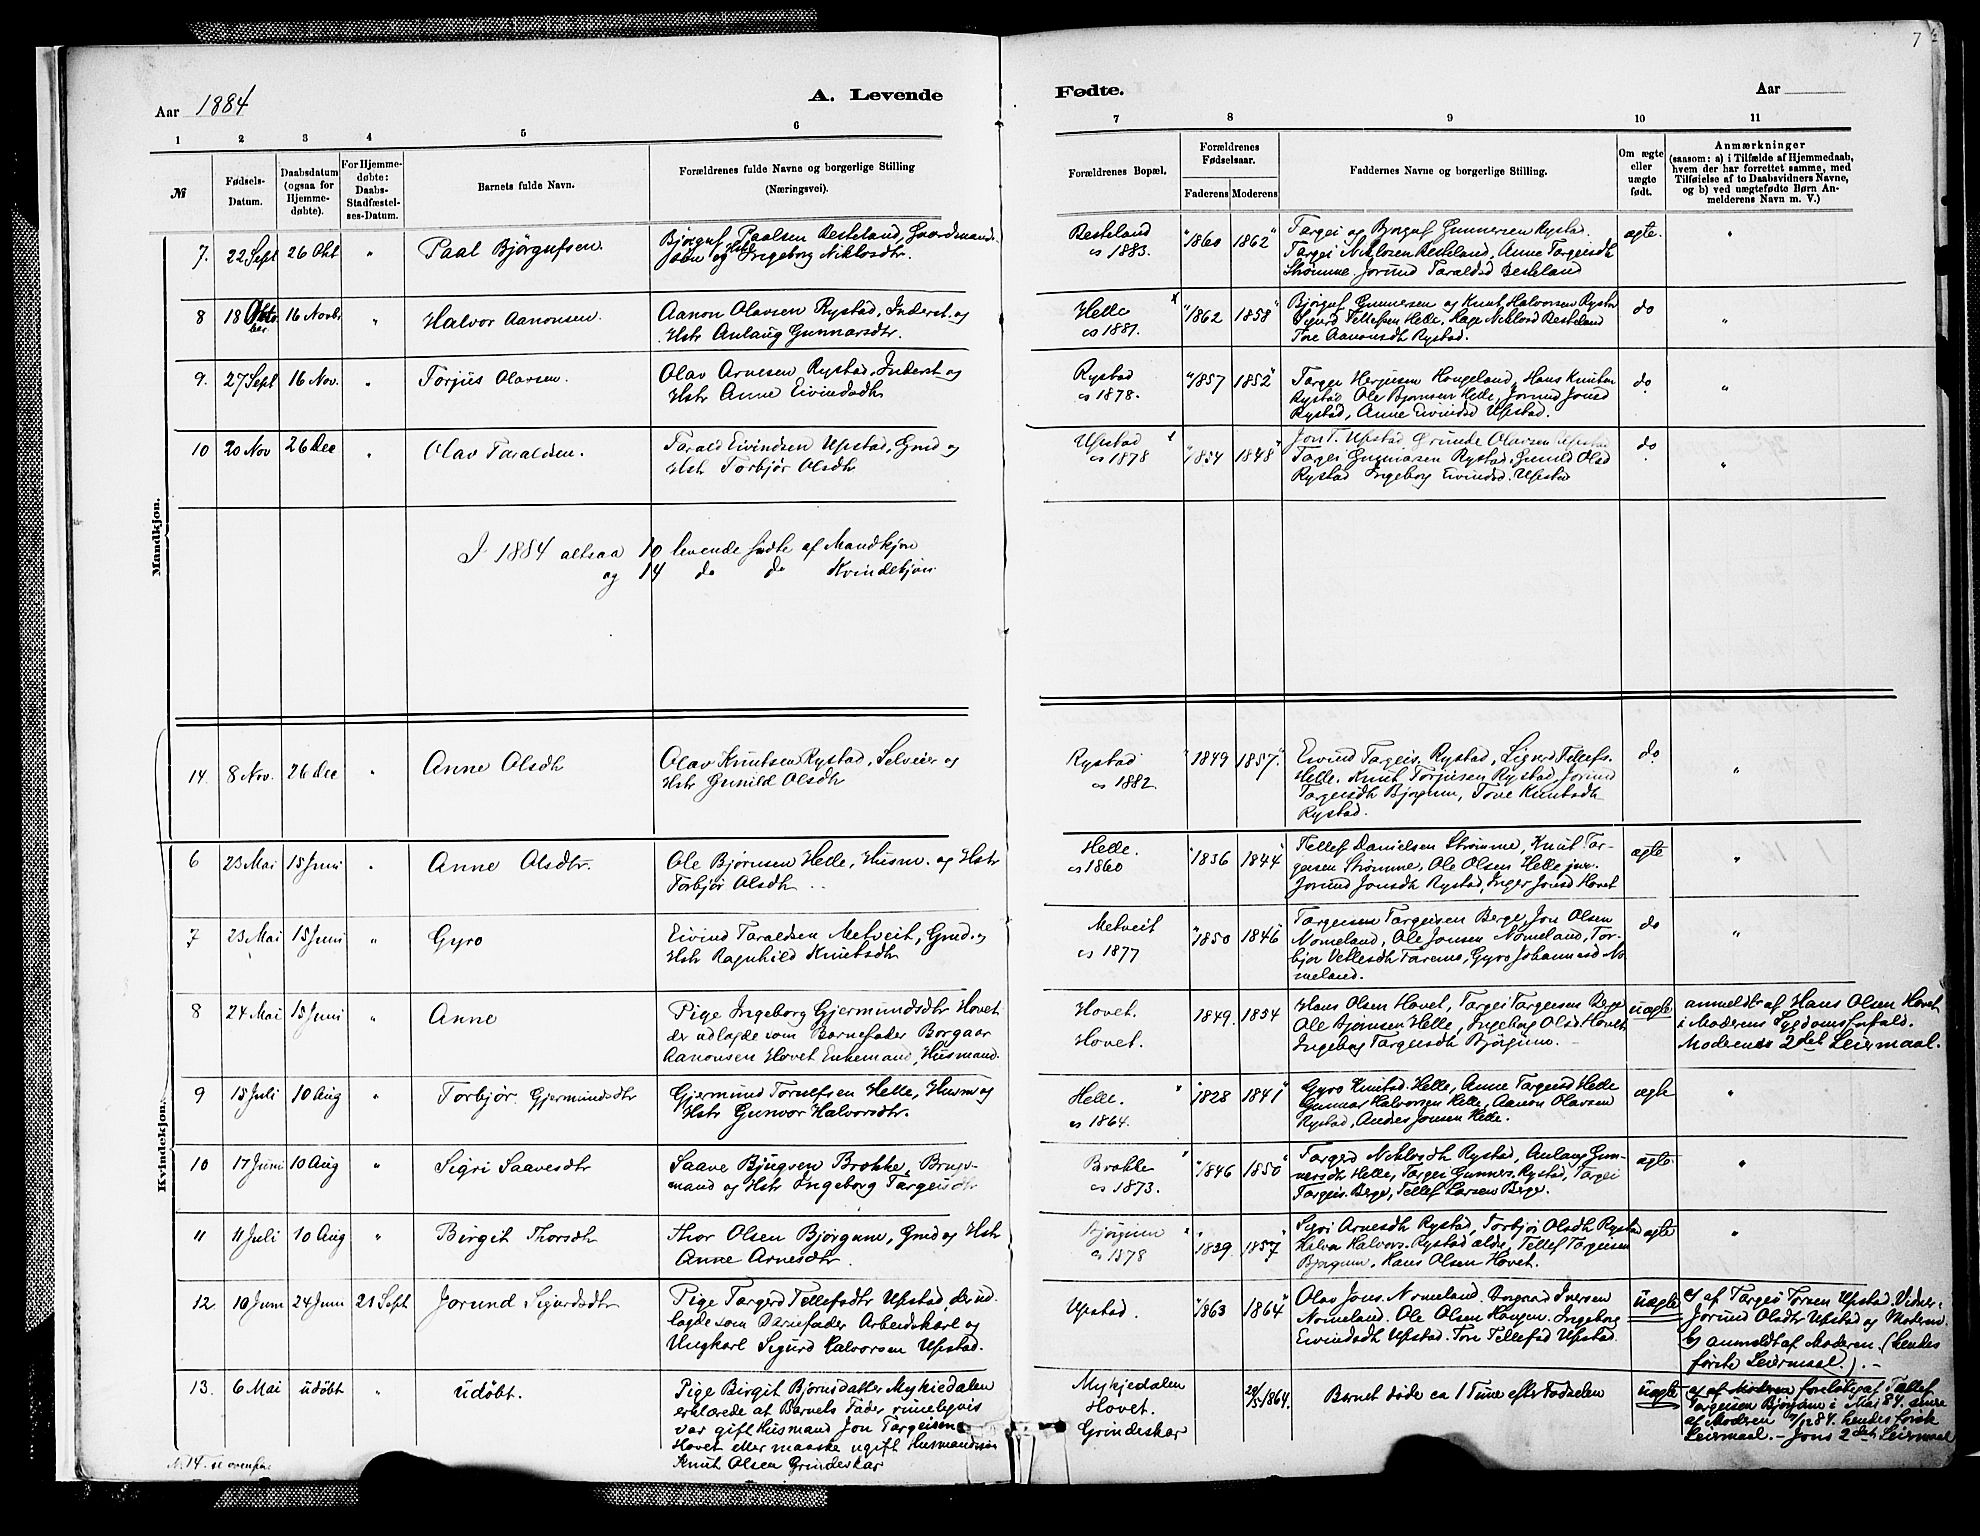 7
Aar 1884
A. Levende
Fødte.
Aar
1 2 3 4 5 6 7 8 9 10 11
№
Fødsels-
Datum.
Daabsdatum
(ogsaa for
Hjemme-
døbte).
For Hjemme-
døbte:
Daabs-
Stadfæstel-
ses-Datum.
Barnets fulde Navn.
Forældrenes fulde Navne og borgerlige Stilling
(Næringsvei).
Forældrenes Bopæl.
Forældrenes
Fødselsaar.
Faderens Moderens
Faddernes Navne og borgerlige Stilling.
Om ægte
eller
uægte
født.
Anmærkninger
(saasom: a) i Tilfælde af Hjemmedaab,
hvem der har forrettet samme, med
Tilføielse af to Daabsvidners Navne,
og b) ved uægtefødte Børn An-
melderens Navn m. V.)
Mandkjøn.
7. 22 Sept 26 Okt " Paal Bjørgufsen.
Bjørguf Paalsen Besteland, Gaardmands
søn og Hstr Ingeborg Niklosdtr.
Besteland
cs 1883.
1860 1862
Targei og Bjørguf Gunnersen Rystad.
Targei Niklosen Besteland, Anne Targeisdh
Strømme. Jorund Taraldsd Besteland
ægte. "
8 18 Octo
ber 16 Novbr " Halvor Aanonsen.
Aanon Olavsen Rystad, Inderst og
Hstr Anlaug Gunnarsdtr.
Helle
cs 1881.
1862 1858
Bjørguf Gunnersen og Knut Halvorsen Rystad
Sigurd Tellefsen Helle. Hage Niklosd Besteland
Tore Aanonsdh Rystad.
do "
9. 27 Sept 16 Nov. " Torjus Olavsen.
Olav Arnesen Rystad, Inderst og
Hstr Anne Eivindsdh
Rystad
cs 1878.
1857 1852
Targei Herjusen Hougeland, Hans Knutsen
Rystad Ole Bjørnsen Helle, Jorund Jonsd
Rystad, Anne Eivindsd Upstad.
do "
10 20 Nov 26 Dec " Olav Taraldsen.
Tarald Eivindsen Upstad, Gmd og
Hstr Torbjør Olsdh
Upstad
cs 1878
1854 1848
Jon T. Upstad Grunde Olavsen Upstad
Targei Gunnarsen Rystad, Gunild Olsd
Rystad Ingeborg Eivindsd. Upstad
do "
I 1884 altsaa 10 levende fødte af Mandkjøn
og 14 do do Kvindekjøn
14. 8 Nov. 26 Dec " Anne Olsdh
Olav Knutsen Rystad, Selveier og
Hstr Gunild Olsdh
Rystad
cs 1882
1849 1857.
Eivind Targeis. Rystad, Sigurd Tellefs.
Helle. Knut Torjusen Rystad Jorund
Targeisdh Bjørgum, Tore Knutsdh
Rystad.
do "
Kvindekjøn.
6 23 Mai 15 Juni " Anne Olsdtr.
Ole Bjørnsen Helle, Husm. og Hstr
Torbjør Olsdh
Helle.
cs 1860
1836 1844
Tellef Danielsen Strømme, Knut Tar-
geisen Strømme, Ole Olsen Helle junr.
Jorund Jonsdh Rystad, Inger Jonsd Hovet
ægte "
7 23 Mai 15 Juni " Gyro
Eivind Taraldsen Metveit, Gmd. og
Hstr Ragnhild Knutsdh
Metveit
cs 1877
1850 1846
Targeisen Targeisen Berge, Jon Olsen
Nomeland, Ole Jonsen Nomeland, Tor-
bjør Vetlesdh Faremo, Gyro Johannesd No
meland.
do "
8 24 Mai 15 Juni " Anne
Pige Ingeborg Gjermundsdtr Hovet
der udlagde som Barnefader Borgaar
Aanonsen Hovet Enkemand, Husmand.
Hovet.
Hovet.
1849. 1854
Hans Olsen Hovet, Targei Targeisen Berge
Ole Bjørnsen Helle, Ingeborg Olsd Hovet
Ingeborg Targeisdh Bjørgum.
uægte
anmeldt af Hans Olsen Hovet
i Moderens Sygdomsforfald.
Moderens 2det Leiermaal.
9 15 Juli 10 Aug " Torbjør. Gjermundsdtr
Gjermund Torulfsen Helle, Husm og
Hstr Gunvor Halvorsdtr.
Helle.
cs 1864.
1828 1841
Gyro Knutsd. Helle, Anne Targeisd Helle
Gunnar Halvorsen Helle, Aanon Olavsen
Rystad, Andres Jonsen Helle.
ægte "
10 17 Juni 10 Aug " Sigri Saavesdtr
Saave Bjugsen Brokke, Brugs-
mand og Hstr Ingeborg Targeisdtr
Brokke
cs 1873.
1846 1850
Targerd Niklosdh Rystad, Anlaug Gun-
nersdh Helle, Targei Gunners. Rystad, Targei
Targeis. Berge, Tellef Larsen Berge.
ægte. "
11 11 Juli 10 Aug " Birgit Thorsdh
Thor Olsen Bjørgum, Gmd og Hstr
Anne Arnesdtr.
Bjørgum
cs 1878
1839. 1857
Sigri Arnesdh Rystad, Torbjør Olsdh Rystad
Halvor Halvors. Rystad ældr, Tellef Targeisen
Bjørgum, Hans Olsen Hovet.
ægte "
12 10 Juni 24 Juni 21 Sept Jorund Sigurdsdtr
Pige Targerd Tellefsdtr Upstad, der ud
lagde som Barnefader Arbeidskarl og
Ungkarl Sigurd Halvorsen Upstad.
Upstad.
1863 1864
Olav Jons. Nomeland. Dagnad Iversen
Nomeland. Ole Olsen Haugen. Ingeborg
Eivindsdh Upstad. Tore Tellefsd Upstad.
uægte
a) af Targei Torsen Upstad. Vidner:
Jorund Olsdtr Upstad og Moderen.
b) anmeldt af Moderen. (hendes
første Leiermaal.). -
13. 6 Mai udøbt " udøbt.
Pige Birgit Bjørnsdatter Mykjedalen
erklærede at Barnets Fader rimeligvis
var gift Husmand Jon Targeisen
Hovet eller maaske ugift Husmandssøn
Knut Olsen Grindeskar
Mykjedalen
Hovet.
Grindeskar
20/5 1864.
Barnet døde ca 1 Time efter Fødselen
uægte
a) af Moderen foreløbig af Tellef
Targeisen Bjørgum i Mai 84. senere
af Moderen 7/12 84. hendes første
Leiermaal. - Jons 2det Leiermaal
N. 14. se ovenfor